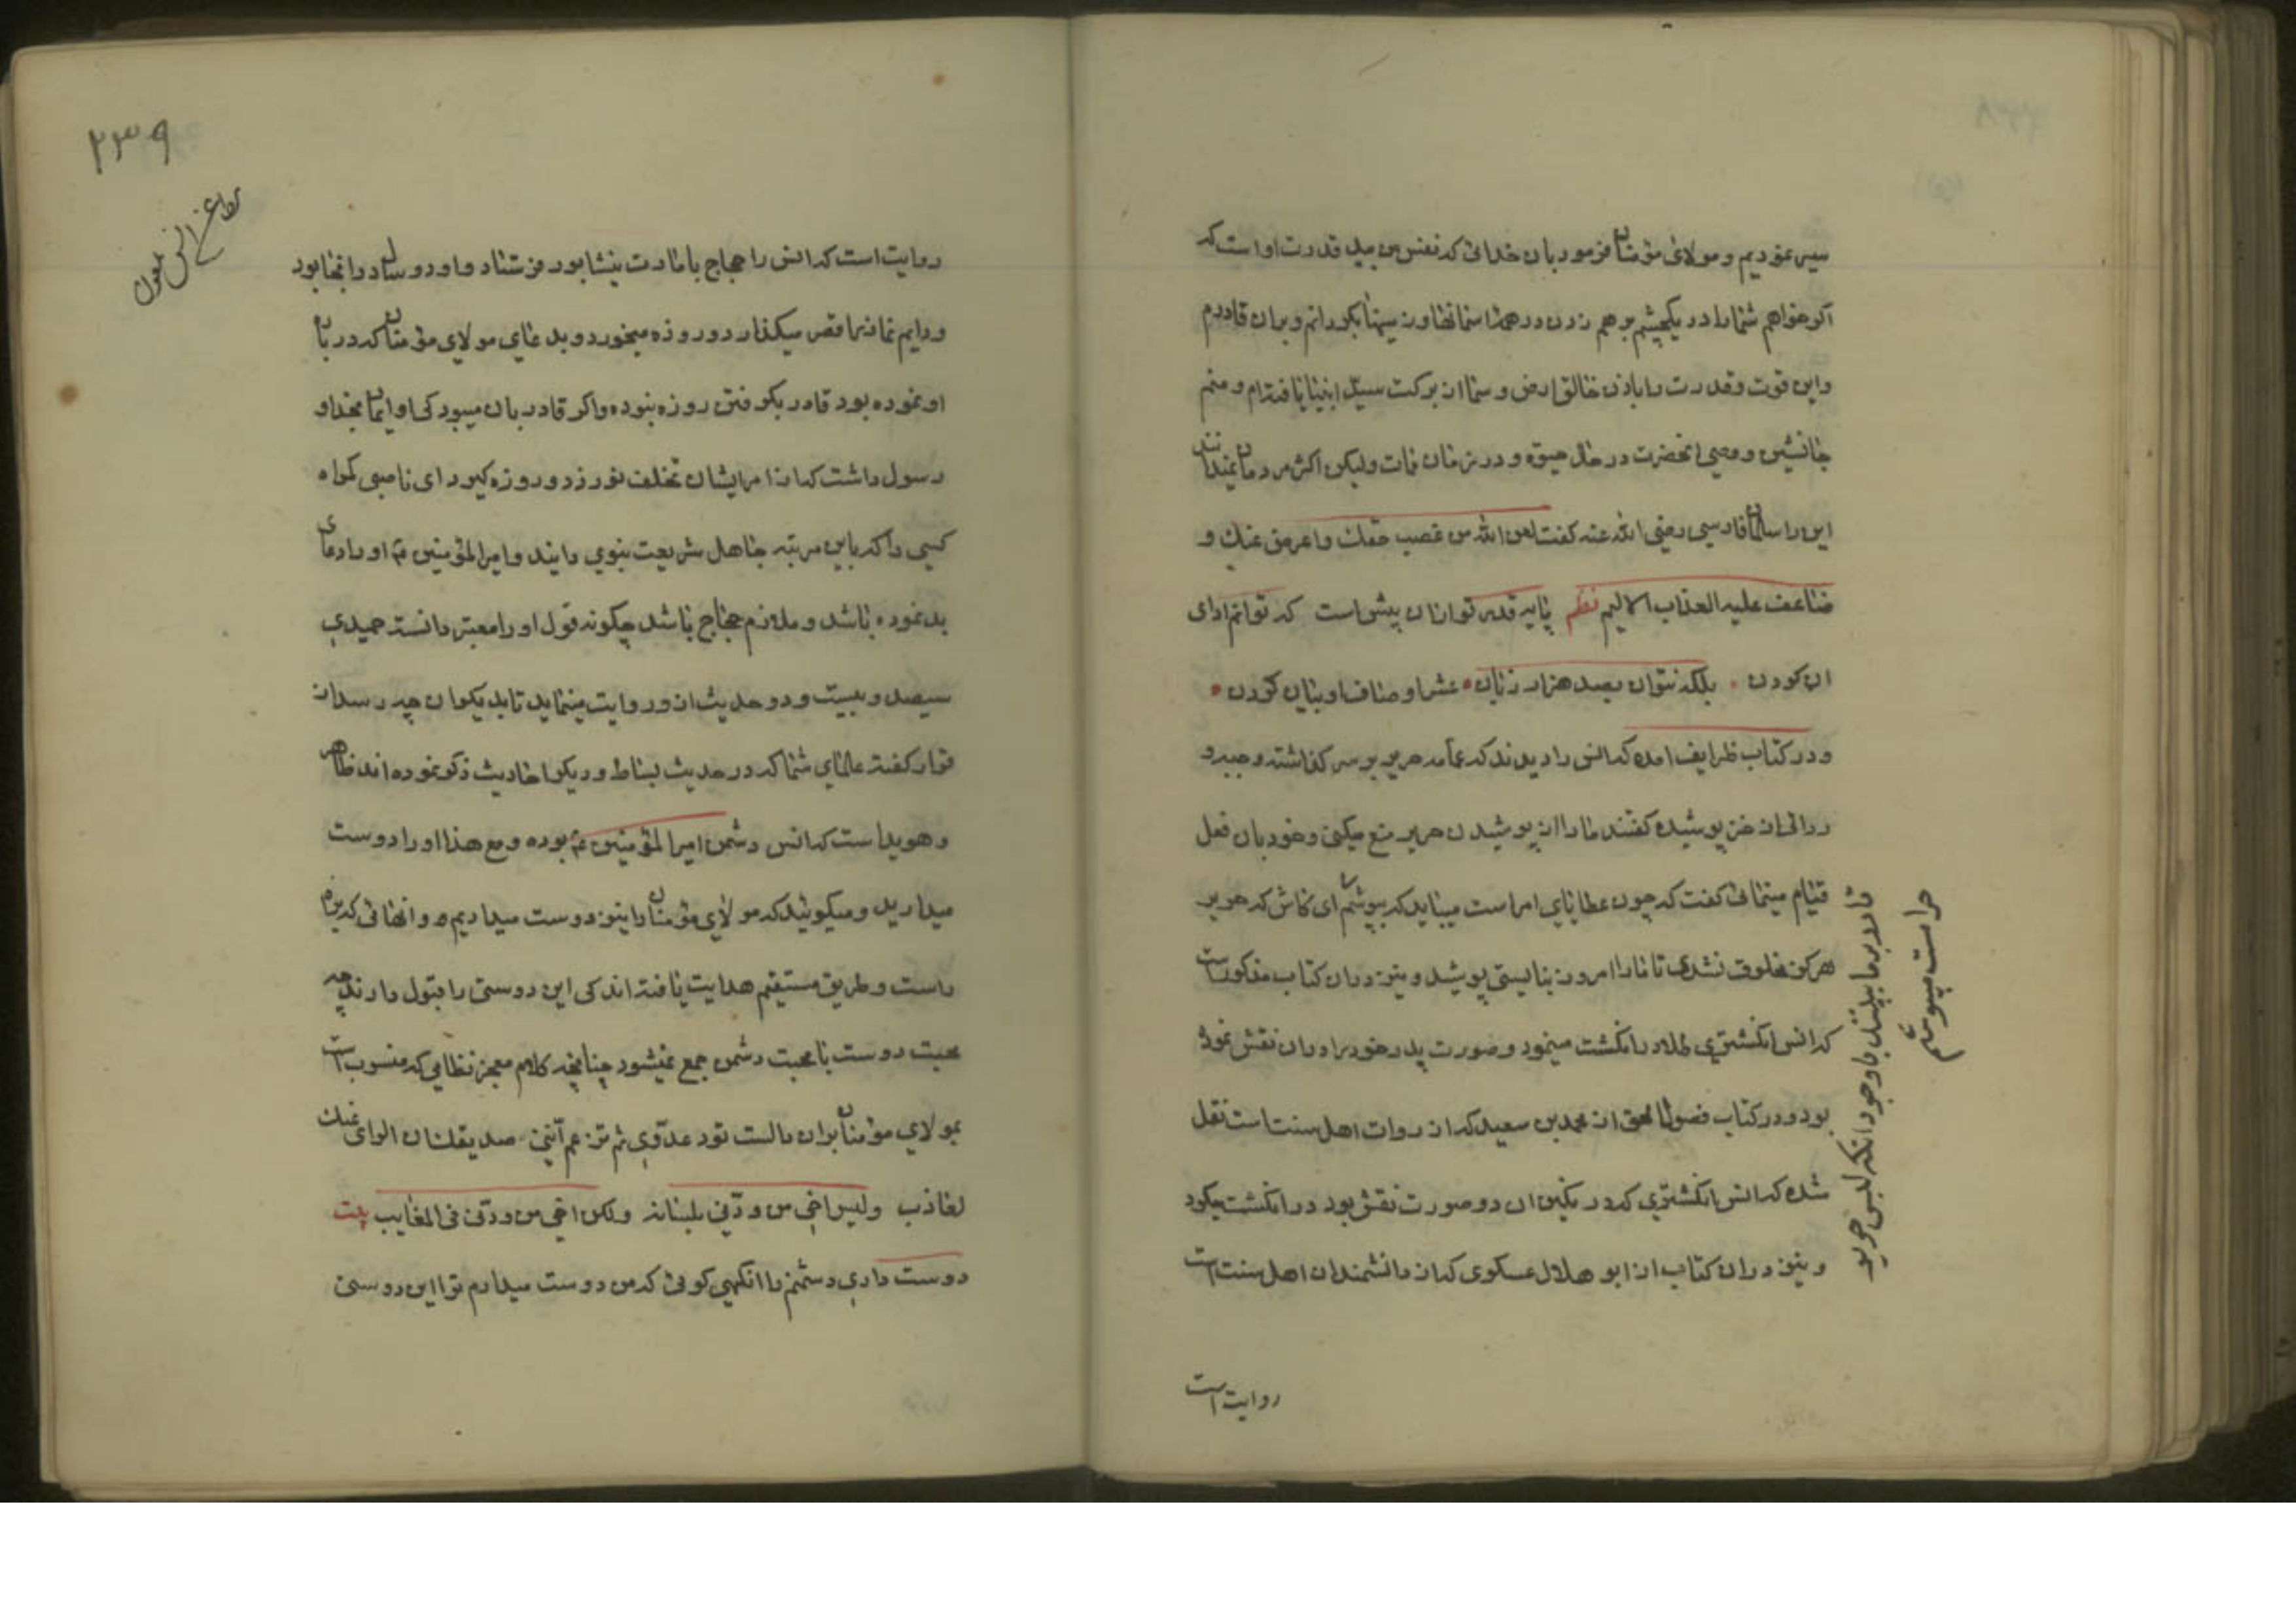 سیر نمودیم و مولای مؤمنان فرمود بان خدائی که نفس من بید قدرت اواست که
اکر خواهم شما را در یکچشم بر هم زدن در همه اسمانها و زمینها بکردانم و بران قادرم
و این قوت و قدرت را باذن خالق ارض و سما از برکت سید انبیا یافته‌ام و منم
جانشین و وصی انحضرت در حال حیوة و در زمان ممات ولیکن اکثر مردمان نمیدانند
این را سلمان فارسی رضی الله عنه کفت لعن الله من غصب حقک و اعرض عنک و
ضاعف علیه العذاب الالیم نظم پایه قدر تو ازان بیش است که توانم ادای
ان کردن . بلکه نتوان بصد هزار زبان . عشر اوصاف او بیان کردن .
و در کتاب طرایف امده که انس را دیدند که عمامه حریر بر سر کذاشته و جبه و
ردائی از خز پوشیده کفتند ما را از پوشیدن حریر منع میکنی و خود بان فعل
قیام مینمائی کفت که چون عطایای امرا است میباید که بپوشم ای کاش که حریر
هرکز مخلوق نشدی تا ما را امروز نبایستی پوشید و نیز در ان کتاب مذکور است
که انس انکشتری طلا در انکشت مینمود و صورت پدر خود را در ان نقش نموده
بود و در کتاب فصول الحق از محمد بن سعید که از روات اهل سنت است نقل
شده که انس انکشتری که در نکین ان دو صورت نقش بود در انکشت میکرد
و نیز در ان کتاب از ابو هلال عسکری که از دانشمندان اهل سنت است
قادر بر ما بینند با وجود انکه لبس حریر
حرامست میپوشم
روایت است
۲۳۹
مطاعن انس ملعون
روایت است که انس را حجاج بامارت نیشابور فرستاد و او دو سال در انجا بود
و دایم نماز ناقص میکذارد و روزه میخورد و بدعای مولای مؤمنان که در باره
او نموده بود قادر بکرفتن روزه نبود و اکر قادر بان میبود کی او ایمان بخدا و
رسول داشت که از امر ایشان تخلف نورزد و روزه کیرد ای ناصبی کمراه
کسی را که باین مرتبه جاهل شریعت نبوی دانید و امیرالمؤمنین ع او را دعای
بد نموده باشد و ملازم حجاج باشد چکونه قول او را معتبر دانسته حمیدی
سیصد و بیست و دو حدیث از و روایت مینماید تا بدیکران چه رسد از
قرار کفته علمای شما که در حدیث بساط و دیکر احادیث ذکر نموده اند ظاهر
و هویدا ست که انس دشمن امیرالمؤمنین ع بوده و مع هذا او را دوست
میدارید و میکوئید که مولای مؤمنان را نیز دوست میداریم و انهائی که براه
راست و طریق مستقیم هدایت یافته اند کی این دوستی را قبول دارند چه
محبت دوست با محبت دشمن جمع نمیشود چنانچه کلام معجز نظامی که منسوب است
بمولای مؤمنان بران دالست تود عدوّی ثم تزعم اننی صدیقک ان الرای عنک
لعاذب ولیس اخی من ودّنی بلسانه ولکن اخی من ودّنی فی المغایب بیت
دوست داری دشمنم را انکهی کوئی که من دوست میدارم ترا این دوستی